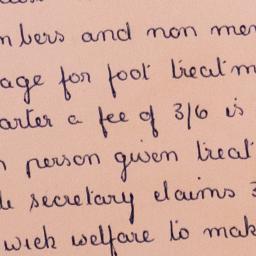 mbers and non mem
age for foot treatm
arter a fee of 3/6 is
n person given treat
le secretary claims 3
wick welfare to mak